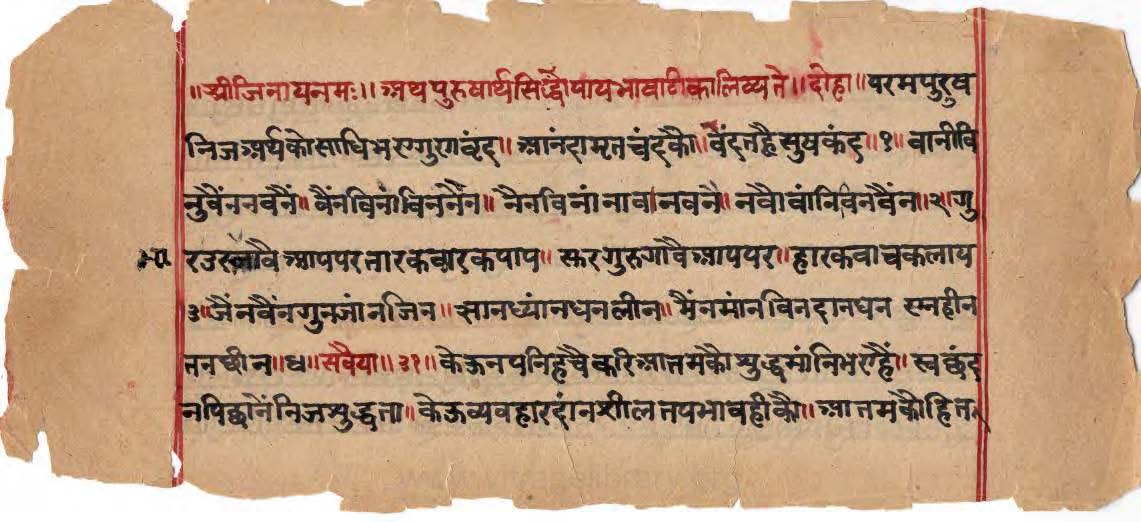 ॥श्रीजिनायनमः॥अथपुरुषार्थसिद्धौपायभाषाटीकालिष्यते॥दोहा॥परमपुरुष
निजअर्थकोसाधिभएगुणवृंद॥आनंदामृतचंदकौ॥वंदतहैसुषकंद॥१॥बानीवि
नुवैंननबनैं॥बैंनविनांविननैंन॥नैनविनांनावांनबनै॥नवौवांनिविनबैंन॥२॥गु
रउरभावैआपपरतारकवारकपाप॥सरगुरुगावैआपपर॥हारकवाचकलाप
३॥जैंनबैंनगुनजांनजिन॥ज्ञानध्यांनधनलीन॥मैंनमांनविनदानघन एनहीन
तनछीन॥४॥सवैया॥३१॥केऊनयनिहचैकरिआतमकौसुद्धमांनिभएहैं॥स्वछंद
नपिछानैंनिजसुद्धता॥केऊव्यवहारदांनसीलतपभावहीकौ॥आतमकौहित